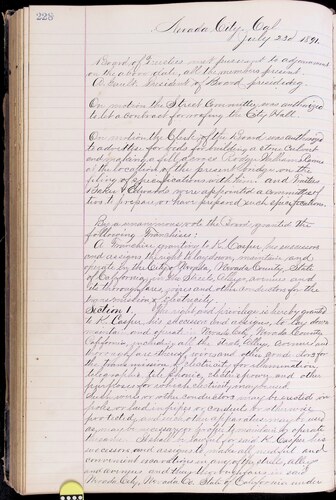 228
Nevada City, Cal
July 23d 1891.
Board of Trustees met pursuant to adjournment
on the above date, all the members present.
President of Board presiding.
On motion the Street Committee was authorized
to let a contract for roofing the City Hall.
On motion the Clerk of the Board was authorized
to advertise for bids for building a stone Culvert
and making a fill across
at the location of the present bridge on the
filing of specifications with him and Trustees
Baker & Edwards were appointed a committee
to prepare or have prepared such specifications.
By a unanimous vote the Board granted the
following Franchise:
A Franchise granting to K. Casper, his successors
and assigns the right to lay down, maintain and
operate in the City of Nevada, Nevada County, State
of California, in the Streets, Alleys, avenues and
thoroughfares, wires and other conductors for the
transmission of electricity.
Section 1. The right and privilege is hereby granted
to K. Casper, his successors and assigns, to lay down
maintain and operate in Nevada City, Nevada County
California, including all the streets, Alleys, avenues and
thoroughfares thereof, wires and other conductors for
the transmission of electricity for
telegraph, telephone, electric light and other
purposes for which electricity may be used.
Such wires or other conductors may be erected on
poles or laid in pipes or conduits or otherwise
protected, and such other apparatus may be used
as may be necessary or proper to maintain & operate
the same. It shall be lawful for said K. Casper his
successors and assigns to make all needful and
convenient excavations in any of the streets, alleys
and avenues and thoroughfares in said
Nevada City, Nevada Co. State of California under